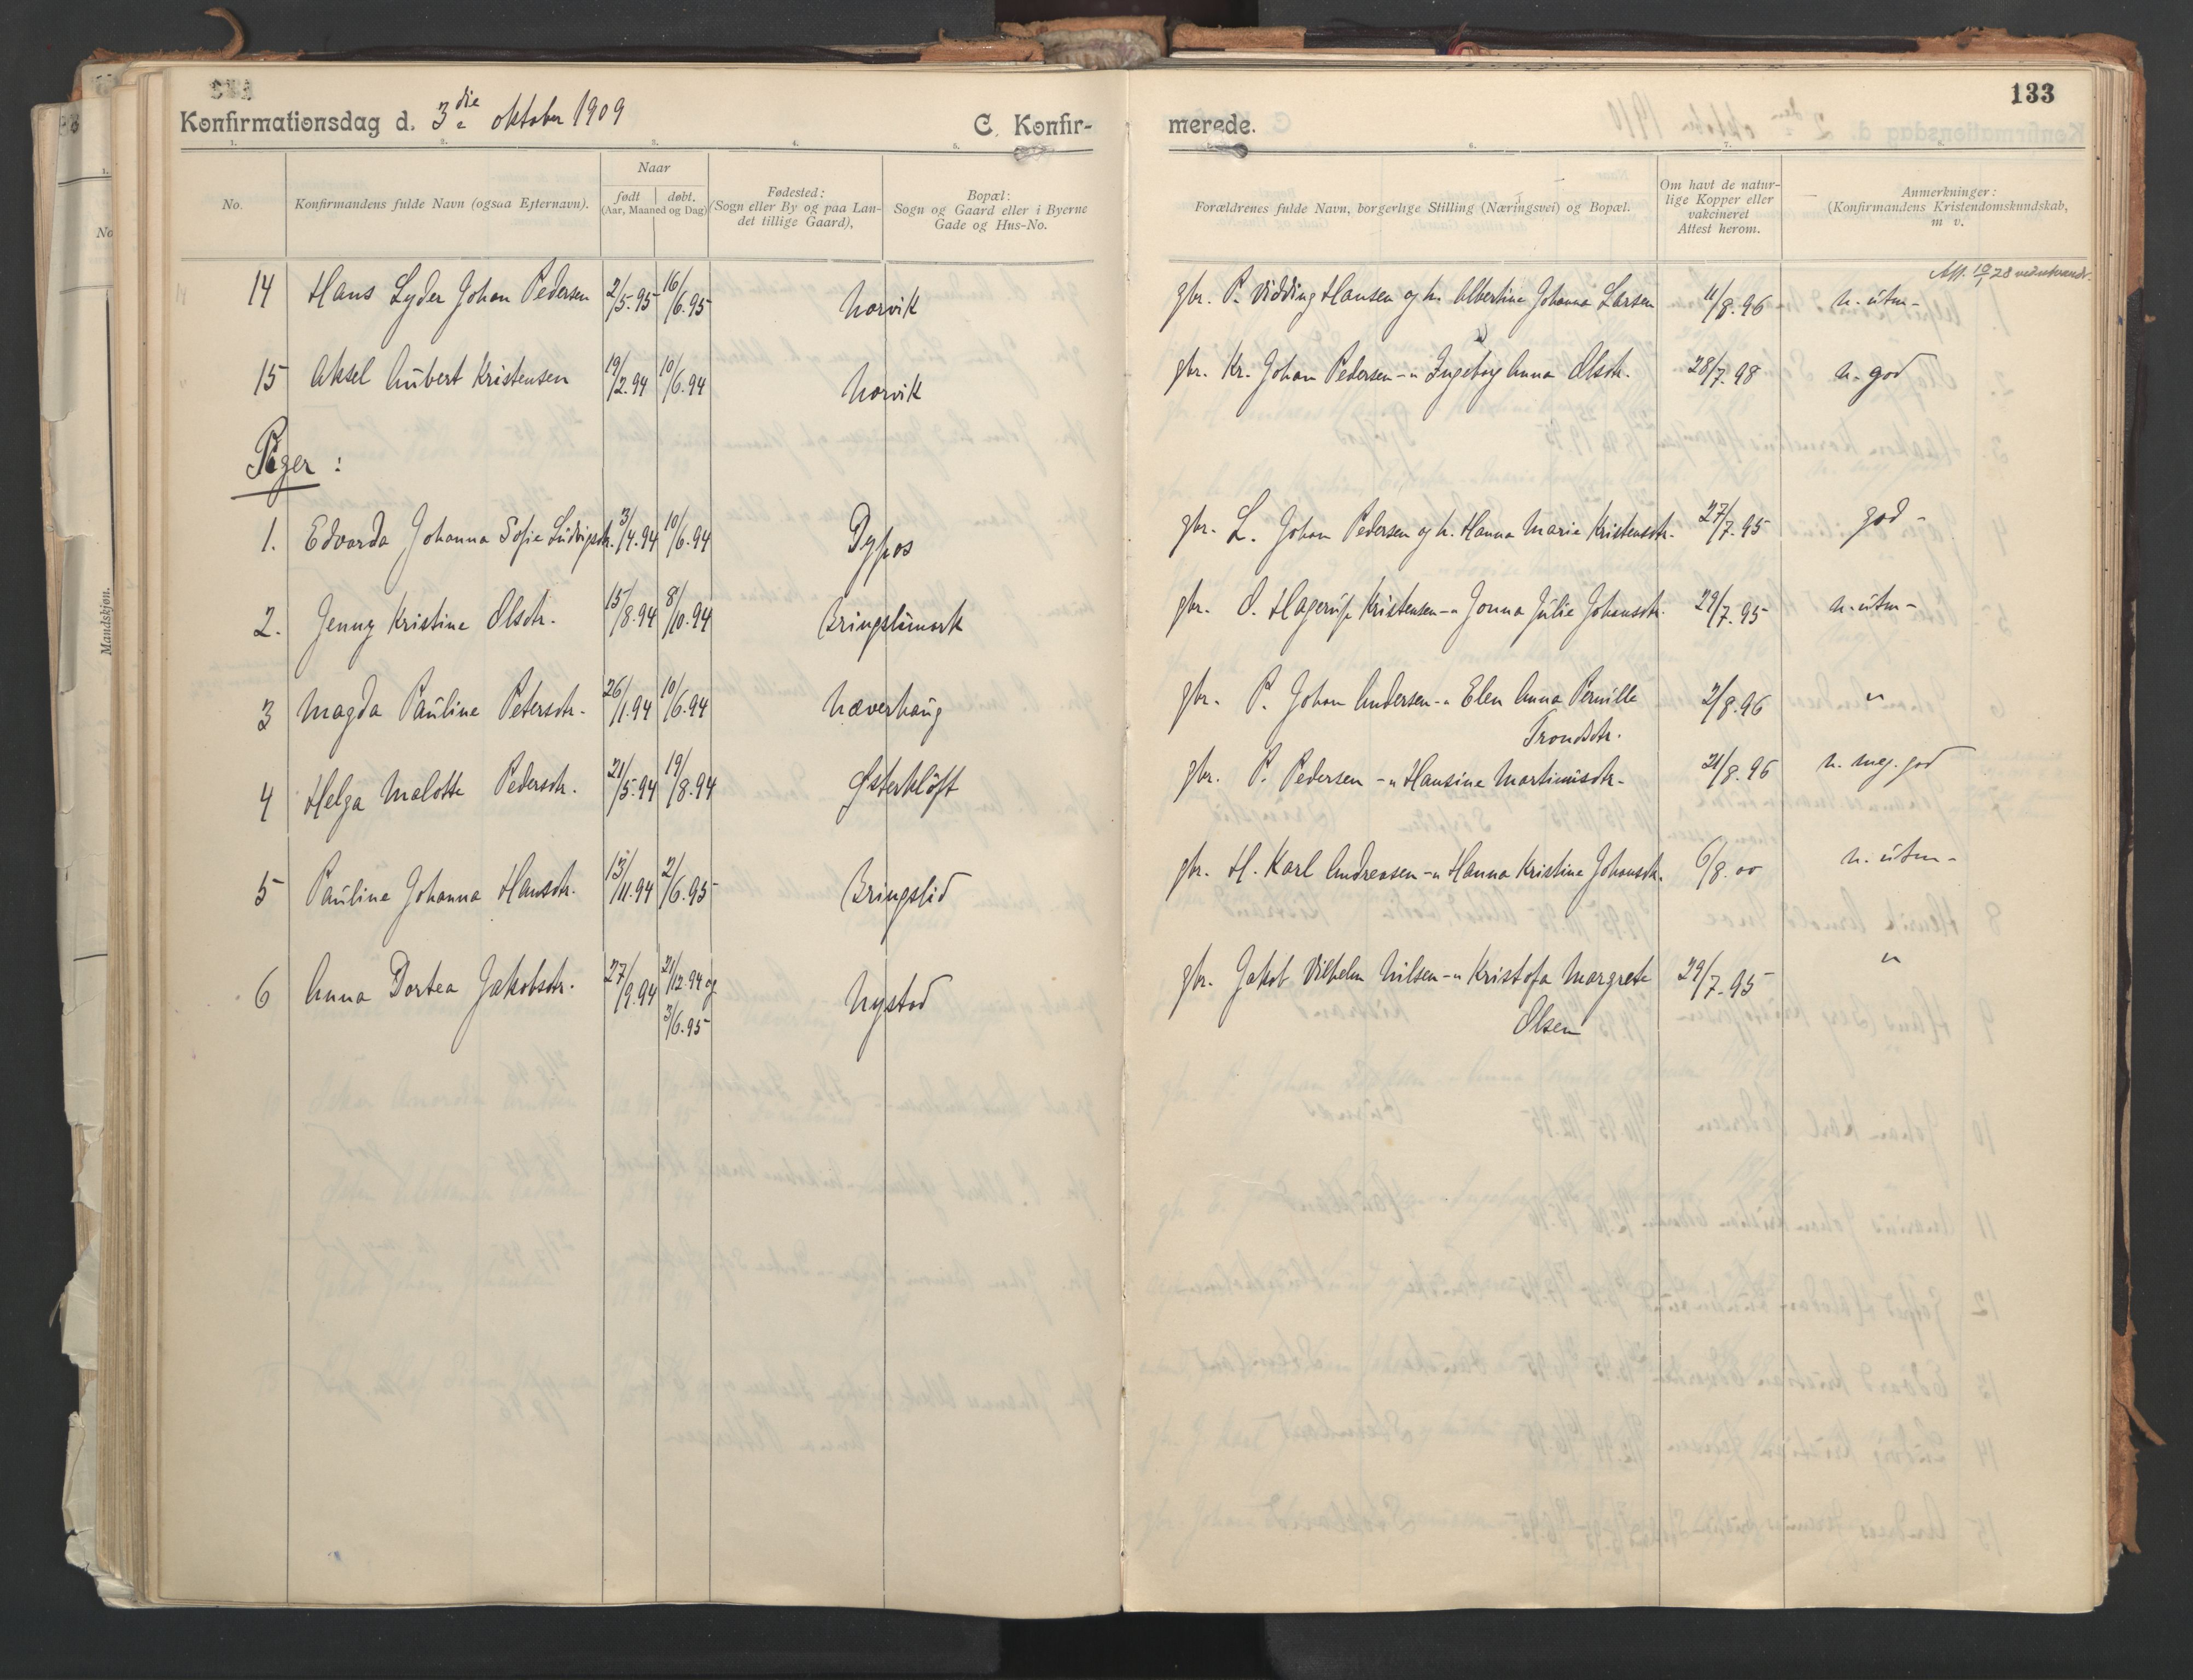 133
Konfirmationsdag d. 3die oktober 1909
C. Konfir-
merede.
1. 2. 3. 4. 5. 6. 7. 8.
No.
Konfirmandens fulde Navn (ogsaa Efternavn).
Naar
født døbt.
(Aar, Maaned og Dag)
Fødested:
(Sogn eller By og paa Lan-
det tillige Gaard),
Bopæl:
Sogn og Gaard eller i Byerne
Gade og Hus-No.
Forældrenes fulde Navn, borgerlige Stilling (Næringsvei) og Bopæl.
Om havt de natur-
lige Kopper eller
vakcineret
Attest herom.
Anmerkninger:
(Konfirmandens Kristendomskundskab,
m v.
Att. 10/7 28
14 Hans Lyder Johan Pedersen 2/5.95 16/6.95 Norvik gbr. P. Vidding Hansen og h. Albertine Johanna Larsen 11/8.96 n. utm-
15 Aksel Hubert Kristensen 19/2.94 10/6.94 Norvik gbr. Kr. Johan Pedersen -"- Ingeborg Anna Olsdtr. 28/7.98 n. god
Piger:
1. Edvarda Johanna Sofie Ludvigsdtr. 3/4.94 10/6.94 Dypos gbr. L. Johan Pedersen og h. Hanna Marie Kristensdtr. 27/7.95 god-
2. Jenny Kristine Olsdtr. 15/8.94 8/10.94 Bringslimark gbr. O. Hagerup Kristensen -"- Jonna Julie Johansdtr. 29/7.95 n. utm-
3 Magda Pauline Petersdtr. 26/1.94 10/6.94 Næverhaug gbr. P. Johan Andersen -"- Elen Anna Pernille 2/8.96 "
Trondsdtr.
4 Helga Malotte Pedersdtr. 21/5.94 19/8.94 Østerkløft gbr. P. Pedersen -"- Hansine Martinusdtr. 21/8.96 n. meg. god
5 Pauline Johanna Hansdtr. 13/11.94 2/6.95 Bringslid gbr. H. Karl Andreasen -"- Hanna Kristine Johansdtr. 6/8.00 n. utm-
6 Anna Dortea Jakobsdtr. 27/9.94 21/12.94 og Nystad gbr. Jakob Vilhelm Nilsen -"- Kristofa Margrete 29/7.95 "
3/6.95 Olsen
Mandskjøn.